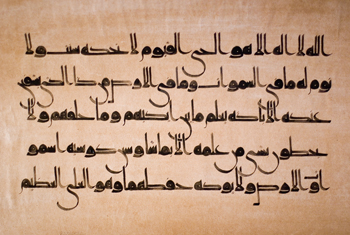 الله لا اله الا هو الحي القيوم لا تاخذه سنه ولا
نوم له ما في السموات وما في الارض من ذا الذي يشفع
عنده الا باذنه يعلم ما بين ايديهم وما خلفهم ولا
يحيطون بشي من علمه الا بما شا وسع كرسيه السمو
ات والارض ولا يوده حفظهما وهو العلي العظيم